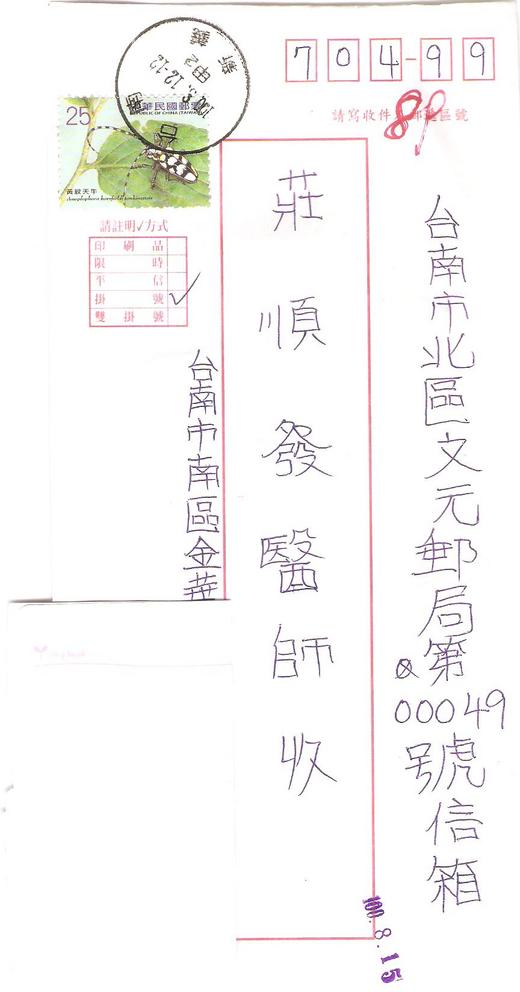 704-99
請寫收件人郵遞區號
89
25
中華民國郵票
REPUBLIC OF CHINA (TAIWAN)
黃紋天牛
台南
100.8.12.-12
甲2
請註明✓方式
印刷品
限時
平信
掛號 ✓
雙掛號
台南市北區文元郵局第
00049
號信箱
莊順發醫師收
台南市南區金華
100.8.15